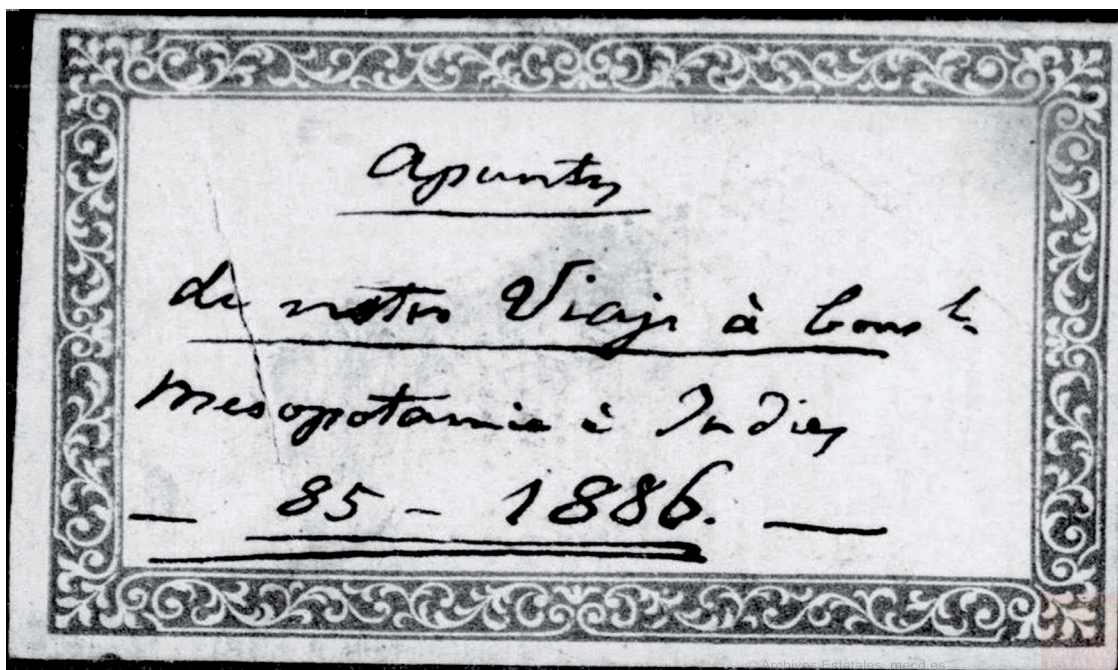 Apuntes
de nstro Viaje à Consla
Mesopotamia è Indias
— 85 – 1886. —
© Archivos Estatales, mecd.es